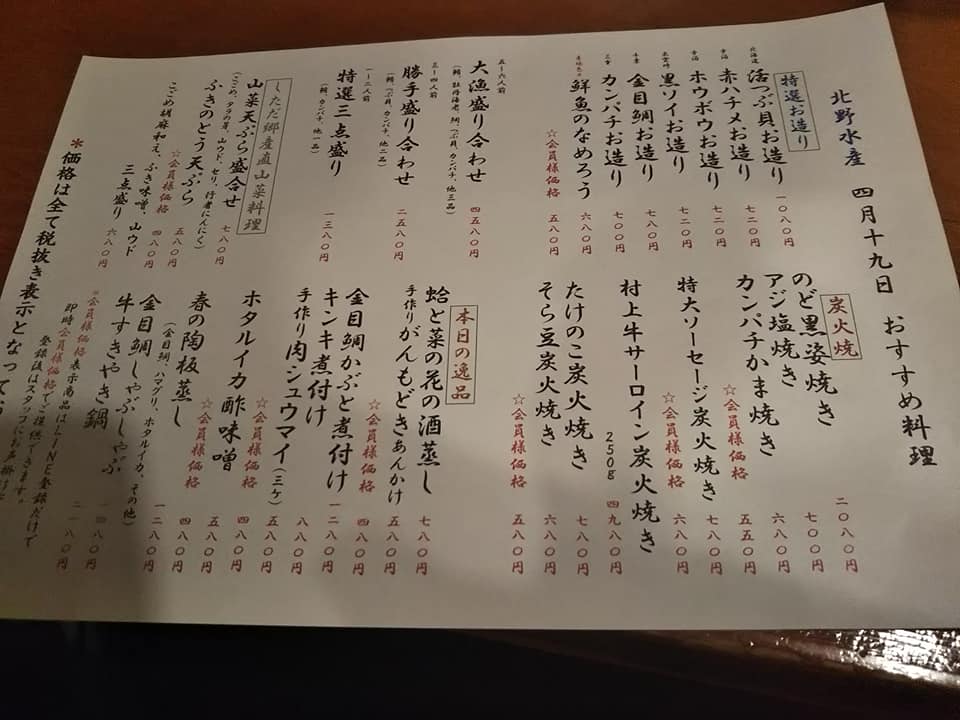 北野水産 四月十九日 おすすめ料理
特選お造り
北海道 活つぶ貝お造り 一〇八〇円
赤ハチメお造り 七二〇円
ホウボウお造り 七二〇円
黒ソイお造り 七二〇円
千葉 金目鯛お造り 七八〇円
三重 カンパチお造り 七〇〇円
鮮魚のなめろう 六八〇円
☆会員様価格 五八〇円
五〜六人前
大漁盛り合わせ 四五八〇円
三〜四人前
勝手盛り合わせ 二五八〇円
一〜二人前
特選三点盛り 一三八〇円
しただ郷産直山菜料理
山菜天ぷら盛合せ 七八〇円
(こごめ、タラの芽、山ウド、セリ、行者にんにく)
ふきのとう天ぷら 五八〇円
☆会員様価格 四八〇円
こごめ胡麻和え、ふき味噌、山ウド
三点盛り 六八〇円
炭火焼
のど黒姿焼き 二〇八〇円
アジ塩焼き 七〇〇円
カンパチかま焼き 六八〇円
☆会員様価格 五五〇円
特大ソーセージ炭火焼き 七八〇円
☆会員様価格 六八〇円
村上牛サーロイン炭火焼き 250g 四九八〇円
たけのこ炭火焼き 七八〇円
そら豆炭火焼き 六八〇円
☆会員様価格 五八〇円
本日の逸品
蛤と菜の花の酒蒸し 七八〇円
手作りがんもどきあんかけ 五八〇円
☆会員様価格 四八〇円
金目鯛かぶと煮付け 一二八〇円
キンキ煮付け 八八〇円
手作り肉シュウマイ(三ケ) 五八〇円
☆会員様価格 四八〇円
ホタルイカ酢味噌 五八〇円
☆会員様価格 四八〇円
春の陶板蒸し 一二八〇円
(金目鯛、ハマグリ、ホタルイカ、その他)
金目鯛しゃぶしゃぶ 一四八〇円
牛すきやき鍋 二一八〇円
※会員様価格表示商品はLINE登録だけで
即時会員様価格でご提供できます。
登録後はスタッフにお声掛け
＊価格は全て税抜き表示となって